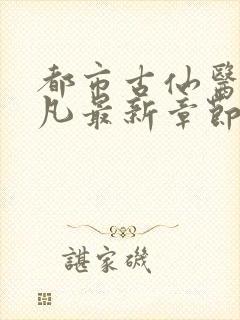 都市古仙醫
凡最新章節
諶家磯